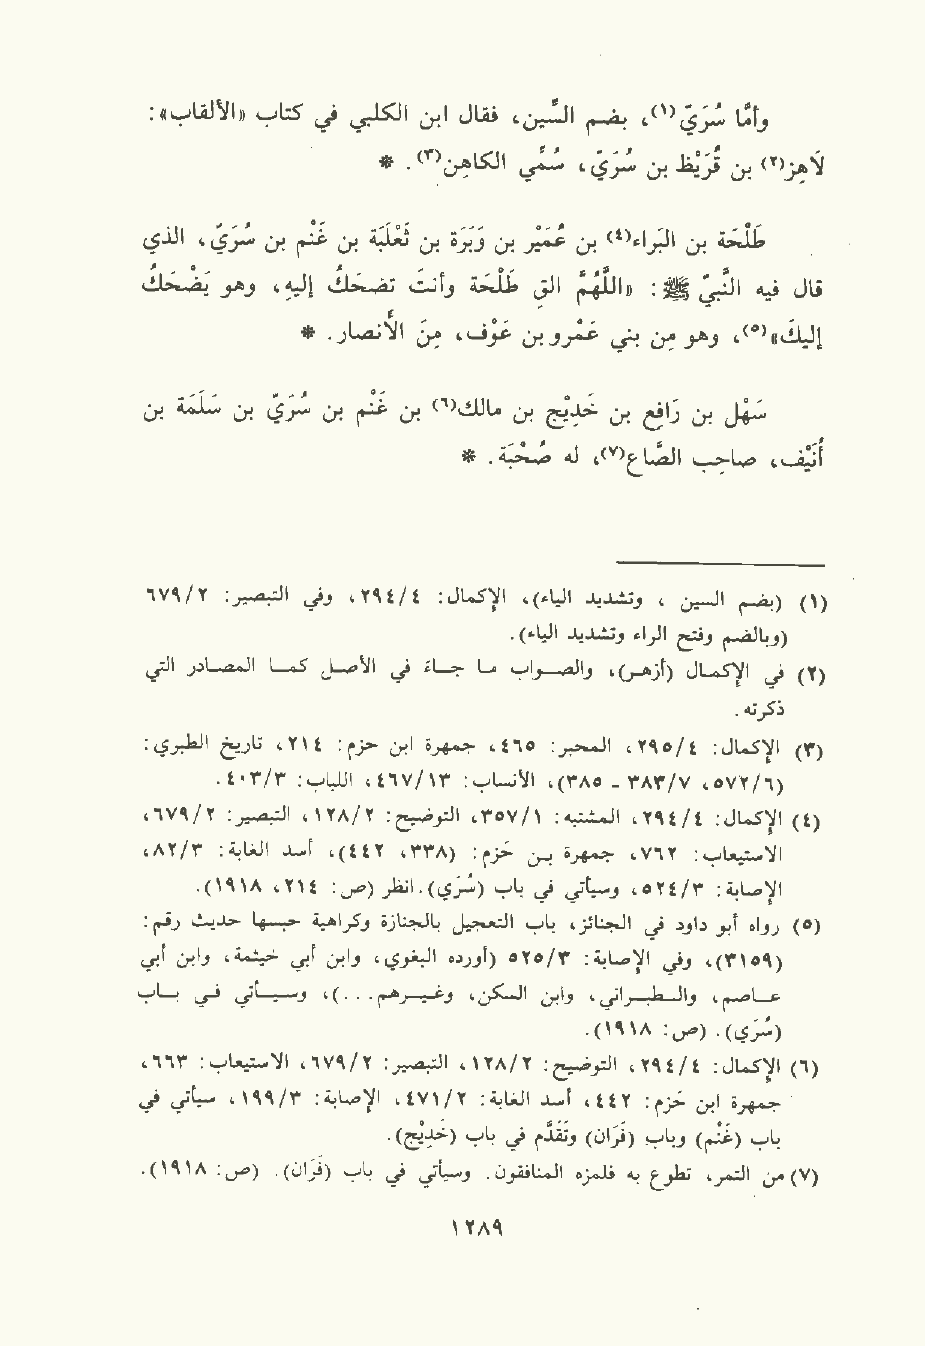 وأمّا سُرَيّ(١)، بضم السِّين، فقال ابن الكلبي في كتاب «الألقاب»:
لَاهِز(٢) بن قُرَيْظ بن سُرَيّ، سُمِّي الكاهِن(٣). *
طَلْحَة بن البَراء(٤) بن عُمَيْر بن وَبَرَة بن ثَعْلَبَة بن غَنْم بن سُرَيّ، الذي
قال فيه النَّبيّ ﷺ: «اللَّهُمّ الق طَلْحَة وأنتَ تضحَكُ إليهِ، وهو يَضْحَكُ
إليكَ»(٥)، وهو مِن بني عَمْرو بن عَوْف، مِنَ الأنصار. *
سَهْل بن رَافِع بن خَدِيْج بن مالك(٦) بن غَنْم بن سُرَيّ بن سَلَمَة بن
أُنَيْف، صاحِب الصَّاع(٧)، له صُحْبَة. *
(١) (بضم السين ، وتشديد الياء)، الإكمال: ٢٩٤/٤، وفي التبصير: ٦٧٩/٢
(وبالضم وفتح الراء وتشديد الياء).
(٢) في الإكمال (أزهر)، والصواب ما جاء في الأصل كما المصادر التي
ذكرته.
(٣) الإكمال: ٢٩٥/٤، المحبر: ٤٦٥، جمهرة ابن حزم: ٢١٤، تاريخ الطبري:
(٥٧٢/٦، ٣٨٣/٧ - ٣٨٥)، الأنساب: ٤٦٧/١٣، اللباب: ٤٠٣/٣.
(٤) الإكمال: ٢٩٤/٤، المشتبه: ٣٥٧/١، التوضيح: ١٢٨/٢، التبصير: ٦٧٩/٢،
الاستيعاب: ٧٦٢، جمهرة بن حزم: (٣٣٨، ٤٤٢)، أسد الغابة: ٨٢/٣،
الإصابة: ٥٢٤/٣، وسيأتي في باب (سُرَي). انظر (ص: ٢١٤، ١٩١٨).
(٥) رواه أبو داود في الجنائز، باب التعجيل بالجنازة وكراهية حبسها حديث رقم:
(٣١٥٩)، وفي الإصابة: ٥٢٥/٣ (أورده البغوي، وابن أبي خيثمة، وابن أبي
عاصم، والطبراني، وابن السكن، وغيرهم...)، وسيأتي في باب
(سُرَي). (ص: ١٩١٨).
(٦) الإكمال: ٢٩٤/٤، التوضيح: ١٢٨/٢، التبصير: ٦٧٩/٢، الاستيعاب: ٦٦٣،
جمهرة ابن حزم: ٤٤٢، أسد الغابة: ٤٧١/٢، الإصابة: ١٩٩/٣، سيأتي في
باب (غَنْم) وباب (فَرَان) وتقدَّم في باب (خَدِيْج).
(٧) من التمر، تطوع به فلمزه المنافقون. وسيأتي في باب (فَرَان). (ص: ١٩١٨).
١٢٨٩